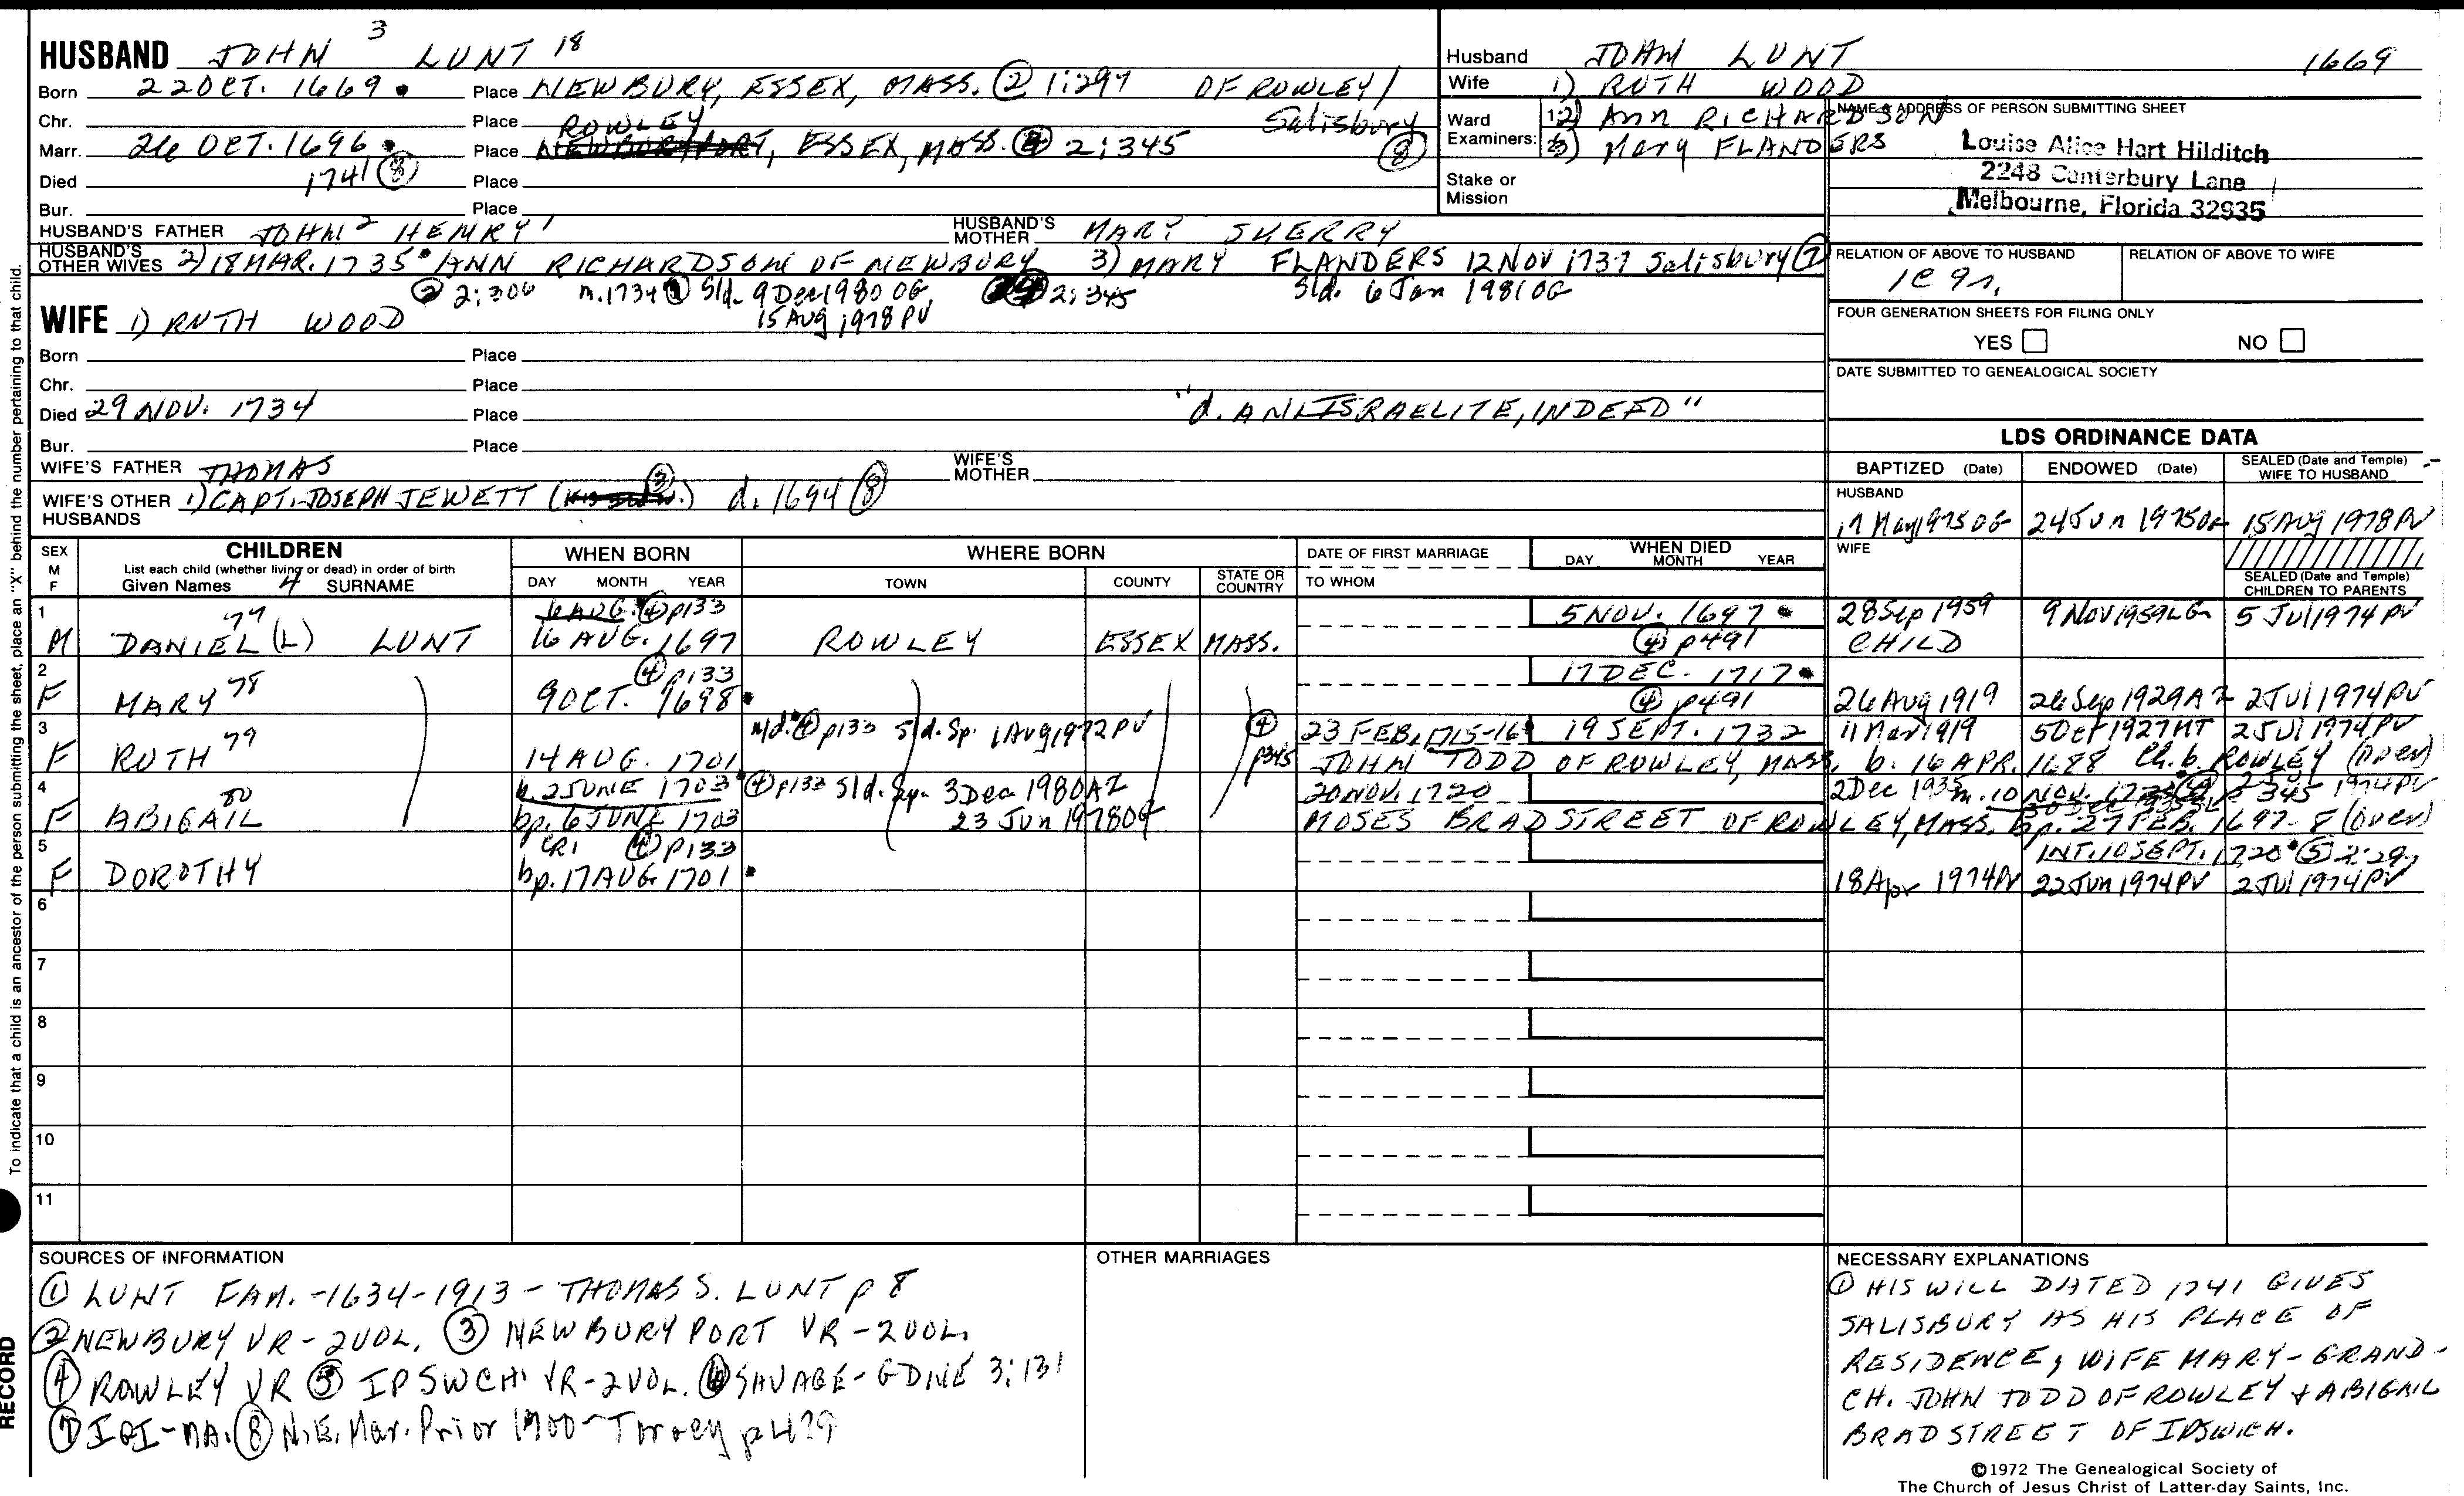 HUSBAND JOHN 3 LUNT 18
Born 22 OCT. 1669 Place NEWBURY, ESSEX, MASS. ② 1:297 OF ROWLEY/
Chr. Place ROWLEY Salisbury
Marr. 26 OCT. 1696 Place NEWBURYPORT, ESSEX, MASS. ④ 2:345 ⑧
Died 1741 ⑧ Place
Bur. Place
HUSBAND'S FATHER JOHN 2 HENRY 1 HUSBAND'S MOTHER MARY SKERRY
HUSBAND'S OTHER WIVES 2) 18 MAR. 1735 ANN RICHARDSON OF NEWBURY 3) MARY FLANDERS 12 NOV 1737 Salisbury ⑦
② 2:306 m. 1734 Sld. 9 Dec 1980 OG 2:345 Sld. 6 Jan 1981 OG
15 AUG 1978 PV
WIFE 1) RUTH WOOD
Born Place
Chr. Place
Died 29 NOV. 1734 Place "d. AN ISRAELITE, INDEED"
Bur. Place
WIFE'S FATHER THOMAS WIFE'S MOTHER
WIFE'S OTHER HUSBANDS 1) CAPT. JOSEPH JEWETT ③ d. 1694 ⑧
Husband JOHN LUNT 1669
Wife 1) RUTH WOOD
Ward Examiners: 1. 2) Ann RICHARDSON
2. 3) Mary FLANDERS
Stake or Mission
NAME & ADDRESS OF PERSON SUBMITTING SHEET
Louise Alice Hart Hilditch
2248 Canterbury Lane
Melbourne, Florida 32935
RELATION OF ABOVE TO HUSBAND RELATION OF ABOVE TO WIFE
FOUR GENERATION SHEETS FOR FILING ONLY
YES NO
DATE SUBMITTED TO GENEALOGICAL SOCIETY
LDS ORDINANCE DATA
BAPTIZED (Date) ENDOWED (Date) SEALED (Date and Temple) WIFE TO HUSBAND
HUSBAND
17 May 1975 OG 24 Jun 1975 OG 15 AUG 1978 PV
WIFE
SEALED (Date and Temple) CHILDREN TO PARENTS
SEX M F
CHILDREN
List each child (whether living or dead) in order of birth
Given Names 4 SURNAME
WHEN BORN
DAY MONTH YEAR
WHERE BORN
TOWN COUNTY STATE OR COUNTRY
DATE OF FIRST MARRIAGE
TO WHOM
WHEN DIED
DAY MONTH YEAR
1 77 6 AUG. ④ p133 5 NOV. 1697 28 Sep 1959 9 NOV 1959 LG 5 Jul 1974 PV
M DANIEL (L) LUNT 16 AUG. 1697 ROWLEY ESSEX MASS. ④ p491 CHILD
2 ④ p133 17 DEC. 1717
F MARY 78 9 OCT. 1698 ④ p491 26 Aug 1919 26 Sep 1929 AZ 2 Jul 1974 PV
3 n/d. ④ p133 Sld. Sp. 1 Aug 1972 PV ④ 23 FEB. 1715-16 19 SEPT. 1732 11 Mar 1919 5 Oct 1927 MT 2 Jul 1974 PV
F RUTH 79 14 AUG. 1701 p345 JOHN TODD OF ROWLEY, MASS. b. 16 APR. 1688 Ch. b. ROWLEY (over)
4 b. 2 JUNE 1703 ④ p133 Sld. Sp. 3 Dec 1980 AZ 20 NOV. 1720 2 Dec 1935 m. 10 NOV. 345 1974 PV
F ABIGAIL 80 bp. 6 JUNE 1703 23 Jun 1978 OG MOSES BRADSTREET OF ROWLEY, MASS. bp. 27 FEB. 1697-8 (over)
5 CR1 ④ p133 INT. 10 SEPT. 1720 ⑤ 2:29
F DOROTHY bp. 17 AUG. 1701 18 Apr 1974 PV 22 Jun 1974 PV 2 Jul 1974 PV
6
7
8
9
10
11
SOURCES OF INFORMATION
① LUNT FAM. -1634-1913- THOMAS S. LUNT p 8
② NEWBURY VR - 2 VOL. ③ NEWBURYPORT VR - 2 VOL.
④ ROWLEY VR ⑤ IPSWCH VR - 2 VOL. ⑥ SAVAGE - GDNE 3:131
⑦ IGI - MA. ⑧ N.E. Mar. Prior 1700 - Torrey p 479
OTHER MARRIAGES
NECESSARY EXPLANATIONS
① HIS WILL DATED 1741 GIVES
SALISBURY AS HIS PLACE OF
RESIDENCE, WIFE MARY - GRAND-
CH. JOHN TODD OF ROWLEY & ABIGAIL
BRADSTREET OF IPSWICH.
©1972 The Genealogical Society of
The Church of Jesus Christ of Latter-day Saints, Inc.
To indicate that a child is an ancestor of the person submitting the sheet, place an "X" behind the number pertaining to that child.
RECORD